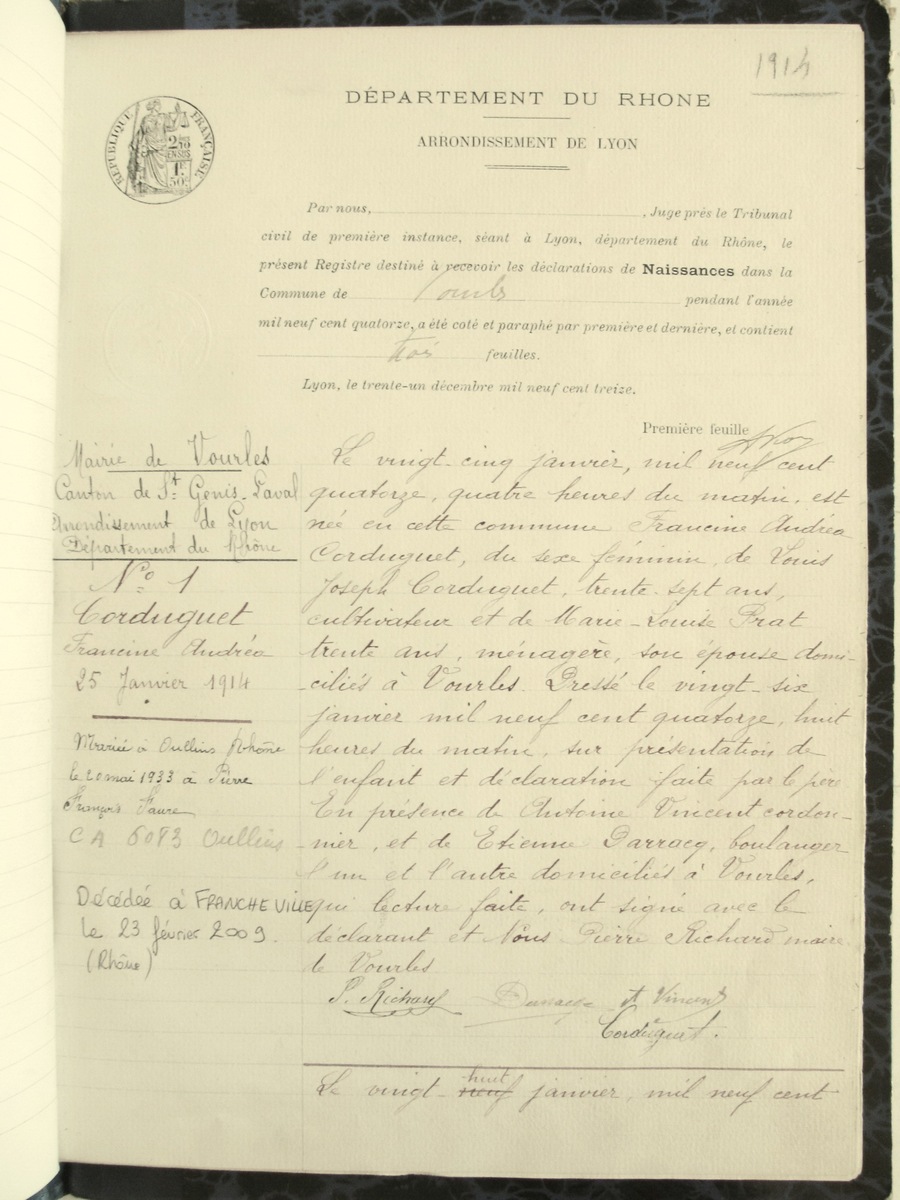 1914
DÉPARTEMENT DU RHONE
ARRONDISSEMENT DE LYON
RÉPUBLIQUE FRANÇAISE
2/10 EN SUS
1F 50c
Par nous, , Juge près le Tribunal
civil de première instance, séant à Lyon, département du Rhône, le
présent Registre destiné à recevoir les déclarations de Naissances dans la
Commune de Vourles pendant l'année
mil neuf cent quatorze, a été coté et paraphé par première et dernière, et contient
trois feuilles.
Lyon, le trente-un décembre mil neuf cent treize.
Première feuille
Mairie de Vourles
Canton de St Genis-Laval
Arrondissement de Lyon
Département du Rhône
No 1
Corduguet
Francine Andréa
25 Janvier 1914
Mariée à Oullins Rhône
le 20 mai 1933 à Pierre
François Faure
CA 6083 Oullins
Décédée à FRANCHEVILLE
le 23 février 2009.
(Rhône)
Le vingt-cinq janvier, mil neuf cent
quatorze, quatre heures du matin, est
née en cette commune Francine Andréa
Corduguet, du sexe féminin, de Louis
Joseph Corduguet, trente-sept ans,
cultivateur et de Marie-Louise Prat
trente ans, ménagère, son épouse domi-
-ciliés à Vourles. Dressé le vingt-six
janvier mil neuf cent quatorze, huit
heures du matin, sur présentation de
l'enfant et déclaration faite par le père
En présence de Antoine Vincent cordon-
-nier, et de Etienne Darracq, boulanger
l'un et l'autre domiciliés à Vourles,
qui lecture faite, ont signé avec le
déclarant et Nous Pierre Richard maire
de Vourles
P. Richard Darracq At Vincent
Corduguet.
Le vingt-neuf huit janvier, mil neuf cent